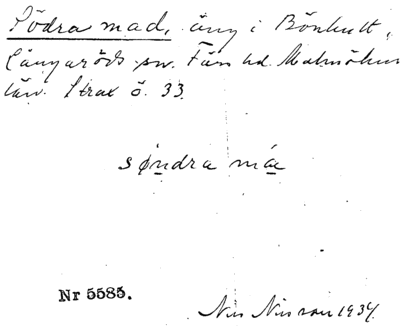 Södra mad, äng i Bönhult,
Långaröds sn. Färs hd. Malmöhus
län. Strax ö. 33.
søndra máa
Nr 5585.
Nils Nilsson 1934.